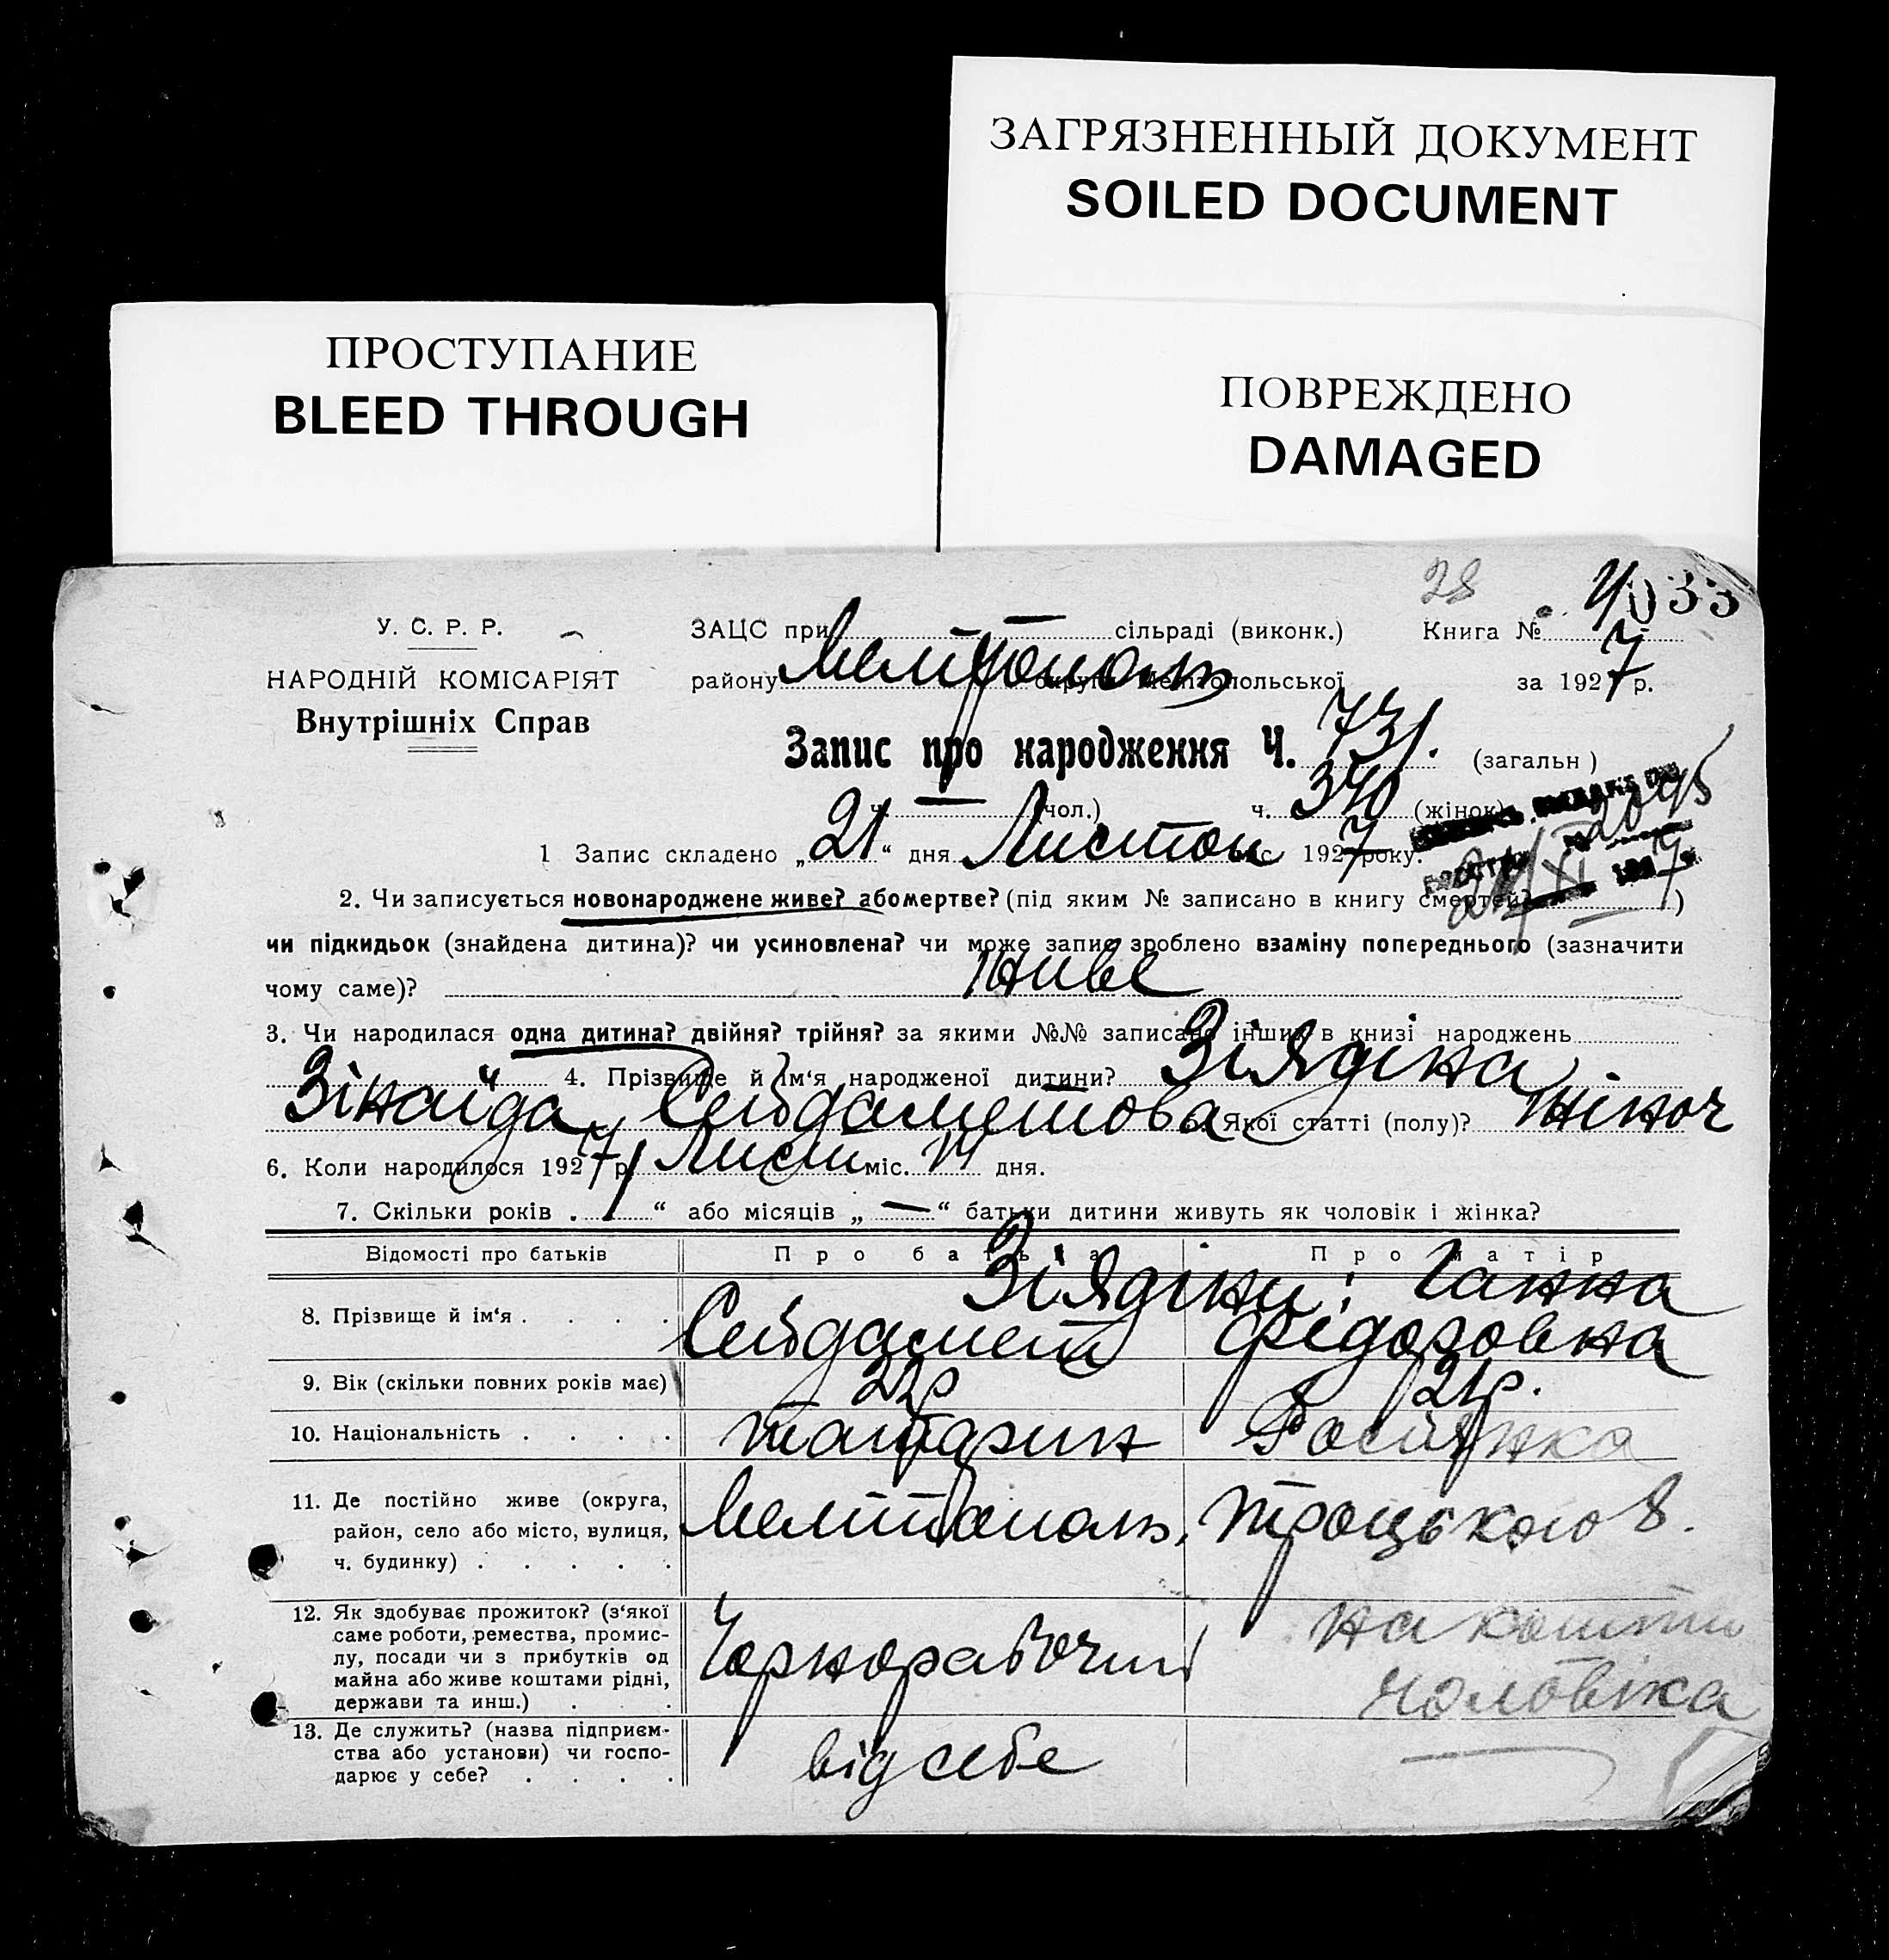 ЗАГРЯЗНЕННЫЙ ДОКУМЕНТ
SOILED DOCUMENT
ПРОСТУПАНИЕ
BLEED THROUGH
ПОВРЕЖДЕНО
DAMAGED
28
4033
У. С. Р. Р.
НАРОДНІЙ КОМІСАРІЯТ
Внутрішніх Справ
ЗАЦС при сільраді (виконк.) Книга №
району Мелітополь округи Мелітопольської за 1927 р.
Запис про народження Ч. 731. (загальн)
ч. — (чол.) ч. 340 (жінок)
1 Запис складено „21“ дня Листоп 1927 року.
2. Чи записується новонароджене живе? або мертве? (під яким № записано в книгу смертей? )
чи підкидьок (знайдена дитина)? чи усиновлена? чи може запис зроблено взаміну попереднього (зазначити
чому саме)? живе
3. Чи народилася одна дитина? двійня? трійня? за якими №№ записано інших в книзі народжень
4. Прізвище й ім‘я народженої дитини? Зіядіна
Зінаїда Сейдаметова Якої статті (полу)? жіноч
6. Коли народилося 1927 р. Лист міс. 14 дня.
7. Скільки років „1“ або місяців „—“ батьки дитини живуть як чоловік і жінка?
Відомості про батьків Про батька Про матір
8. Прізвище й ім‘я . . . . Зіядіни: Сейдамет Ганна Федоровна
9. Вік (скільки повних років має) 21р.
10. Національність . . . . татарин Росіянка
11. Де постійно живе (округа,
район, село або місто, вулиця,
ч. будинку) . . . . . Мелітополь, Троцького 8.
12. Як здобуває прожиток? (з‘якої
саме роботи, ремества, промис-
лу, посади чи з прибутків од
майна або живе коштами рідні,
держави та инш.) . . . Чорнорабочий на кошти чоловіка
13. Де служить? (назва підприєм-
ства або установи) чи госпо-
дарює у себе? . . . . від себе